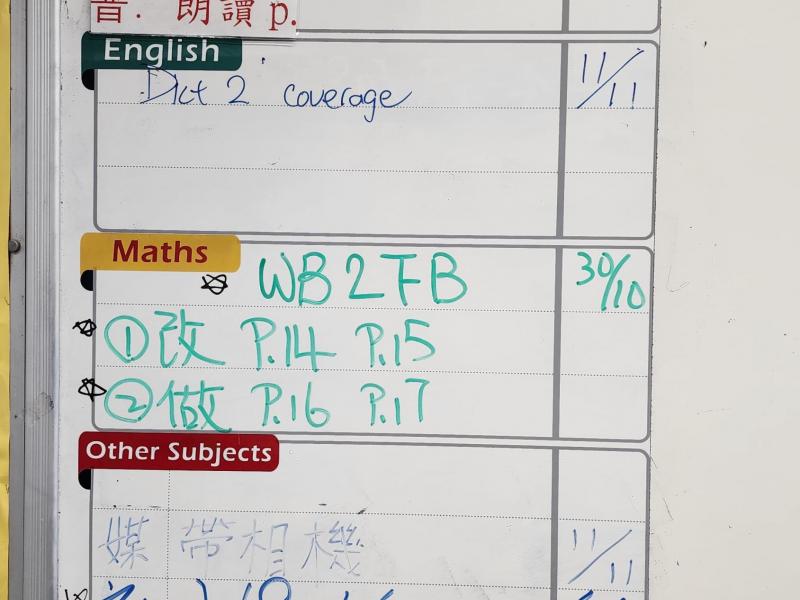 普. 朗讀 p.
English
Dict 2 coverage 11/11
Maths
WB 2FB 30/10
①改 P.14 P.15
②做 P.16 P.17
Other Subjects
媒 帶相機 11/11